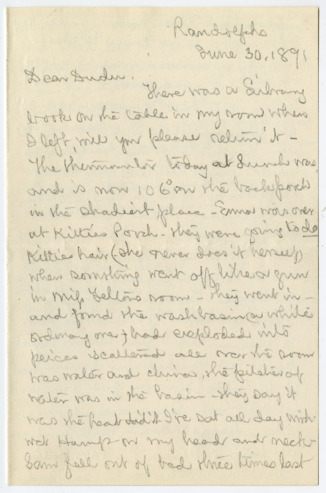 Randolphs
June 30, 1891
Dear Dudu.
There was a Library
book on the table in my room when
I left, will you please return it -
The thermometer today at lunch was
and is now 106° on the back porch
in the shadiest place - Emma was over
at Kitties Porch - they were going to do
Kitties hair (she never does it herself)
when something went off like a gun
in Miss Jeltons room - they went in -
and found the washbasin, a white
ordinary one, had exploded into
peices scattered all over the room
was water and china, the pitcher of
water was in the basin - they say it
was the heat did it I've sat all day with
wet on my head and neck -
Sam fell out of bed three times last